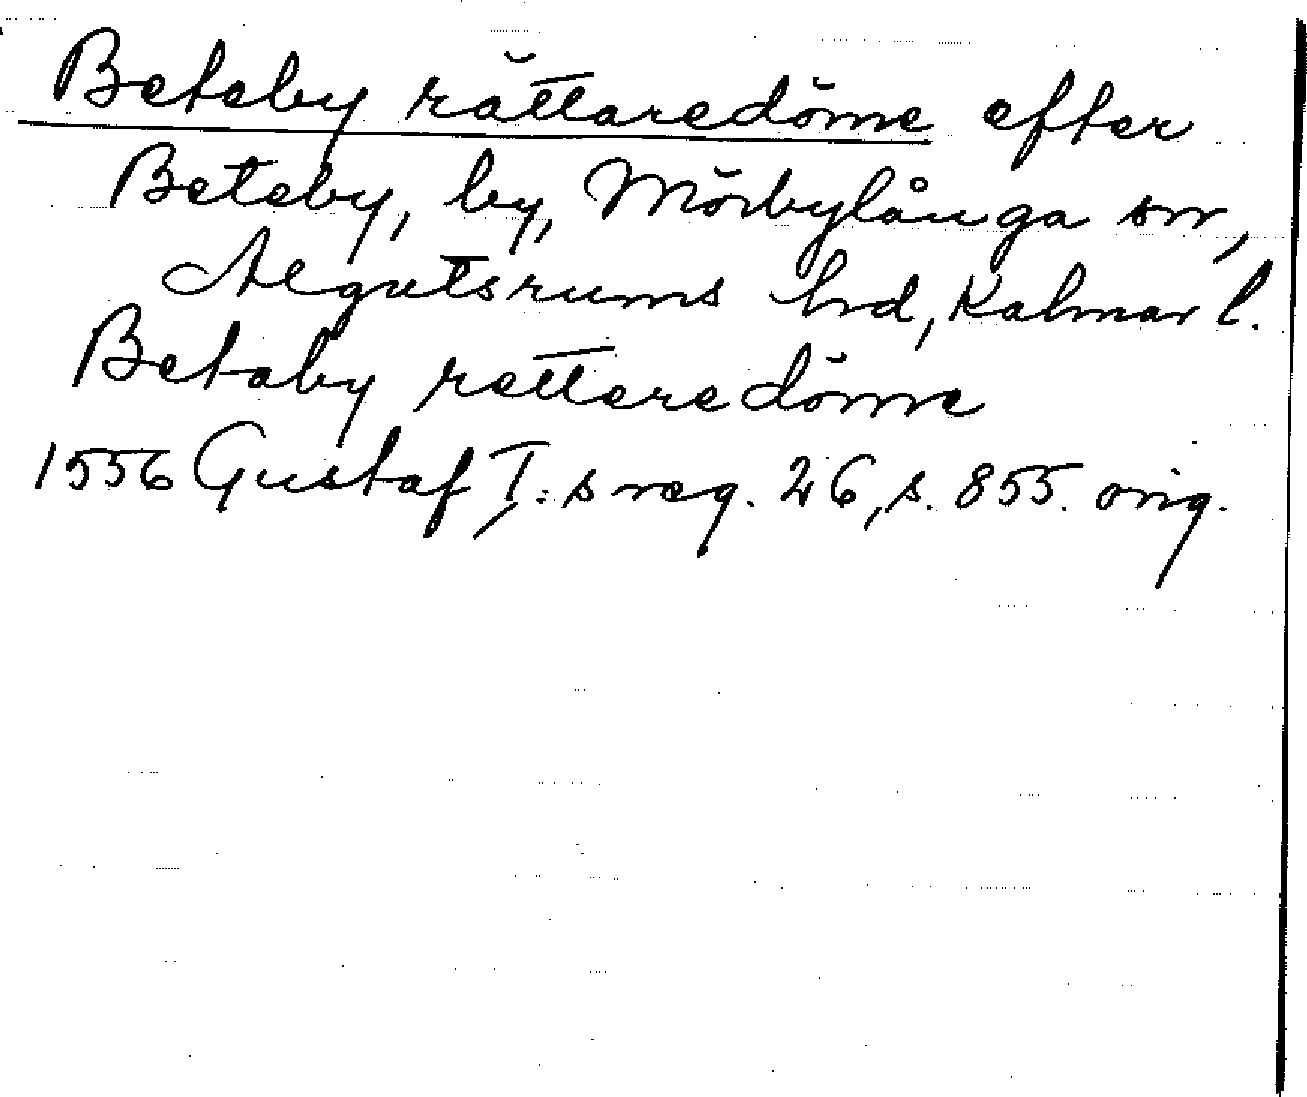 Beteby rättaredöme efter
Beteby, by, Mörbylånga sn,
Algutsrums hrd, Kalmar l.
Betaby rettaredöme
1556 Gustaf I:s reg. 26, s. 855. orig.